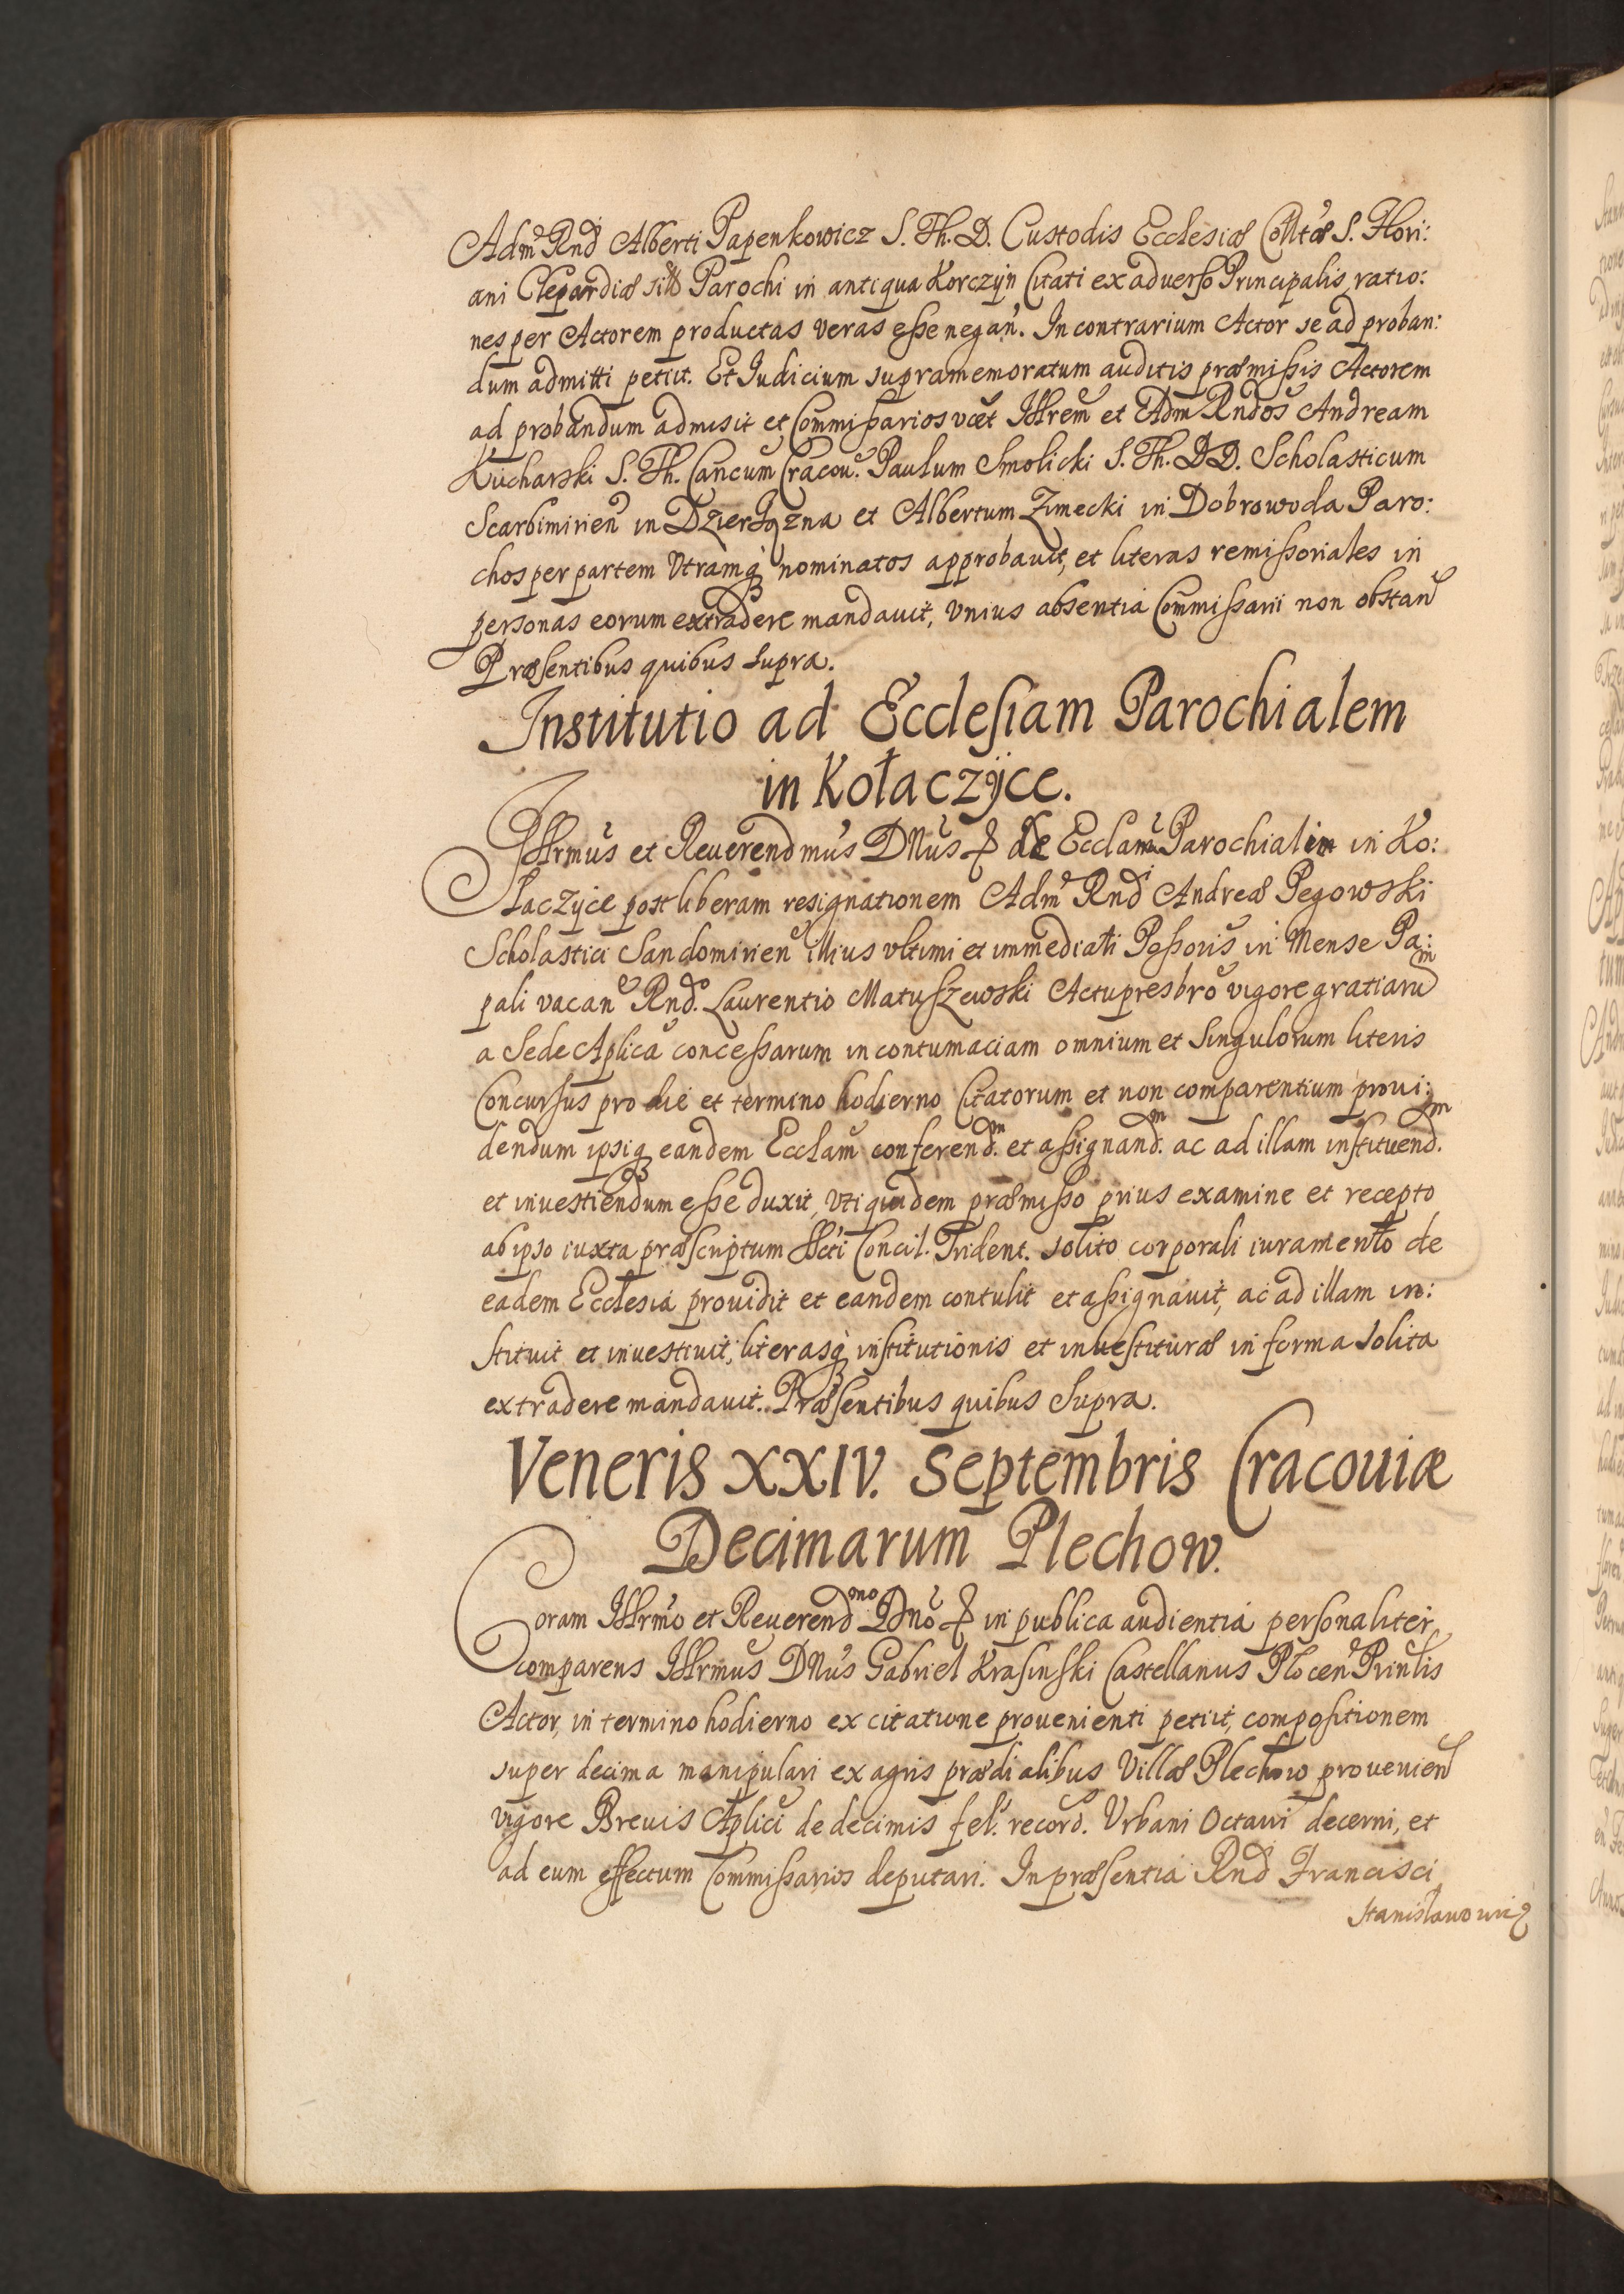 Adm Rnd Alberti Papenkowicz S. Th. D. Custodis Ecclesiæ Colltæ S. Flori:
ani Clepardiæ Parochi in antiqua Korczyn Citati ex aduerso Principalis, ratio:
nes per Actorem productas veras esse negan. In contrarium Actor se ad proban:
dum admitti petiit. Et Iudicium supramemoratum auditis præmissis Actorem
ad probandum admisit et Commissarios vcet Illrem et Adm Rndos Andream
Kucharski S. Th. Cancum Cracou. Paulum Smolicki S. Th. DD. Scholasticum
Scarbimirien in Dzierążna et Albertum Zimecki in Dobrowoda Paro:
chos per partem Vtramq nominatos approbauit, et literas remissoriales in
personas eorum extradere mandauit, vnius absentia Commissarii non obstan
Præsentibus quibus supra.
Institutio ad Ecclesiam Parochialem
in Kołaczÿce.
Illrmus et Reuerendmus DNus & de Ecclam Parochialem in Ko:
łaczyce post liberam resignationem Adm Rndi Andreæ Pegowski
Scholastici Sandomirien illius vltimi et immediati Possoris in Mense Pa:
pali vacan Rndo. Laurentio Matuszewski Actupresbro vigore gratiarum
a Sede Aplica concessarum in contumaciam omnium et singulorum literis
Concursus pro die et termino hodierno Citatorum et non comparentium proui:
dendum ipsiq eandem Ecclam conferendm. et assignandm. ac ad illam instituendm.
et inuestiendum esse duxit, vti quidem præmisso prius examine et recepto
ab ipso iuxta præscriptum Concil. Trident. solito corporali iuramento de
eadem Ecclesia prouidit et eandem contulit et assignauit, ac ad illam in:
stituit et inuestiuit, literasq institutionis et inuestituræ in forma solita
extradere mandauit. Præsentibus quibus Supra.
Veneris XXIV. Septembris Cracouiæ
Decimarum Plechow.
Coram Illrmo et Reuerendmo Dno & in publica audientia personaliter
comparens Illrmus DNus Gabriel Krasinski Castellanus Plocen Prinlis
Actor, in termino hodierno ex citatione prouenienti petiit, compositionem
super decima manipulari ex agris prædialibus Villæ Plechow prouenien
vigore Breuis Aplici de decimis fel. record. Vrbani Octaui decerni, et
ad eum effectum Commissarios deputari. In præsentia Rnd Francisci
Stanisławowicz